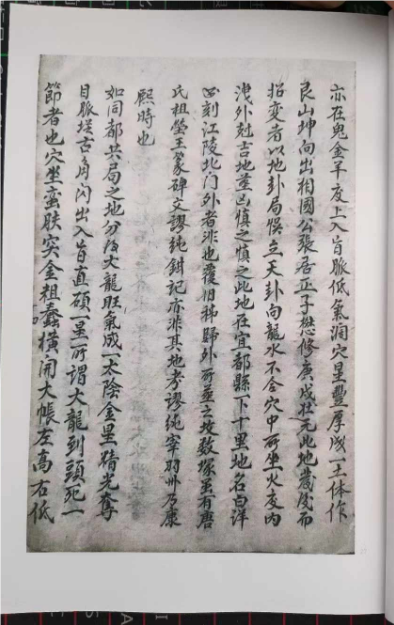 亦在鬼金半度上入首脉低氣润穴星豐厚成一土体作
艮山坤向出相國公張居正子懋修庚戌壮元此地歲後而
招变者以地卦局悮立天卦向龍水不合穴中所坐火度内
洩外尅吉地塟凶慎之慎之此地在宜都縣下十里地名白洋
四刻江陵北门外者非也覆旧秭歸外所塟之坟数塚虽有唐
氏祖塋王篆碑文謬纯錯記亦非其地考謬纯宰羽州乃康
熙時也
如同都共局之地分脉大龍旺氣成一太陰金星精光奪
目脉從古角闪出入首直硕一星所謂大龍到頭死一
節者也穴坐蛮肤突金粗蠢橫開大帳左高右低